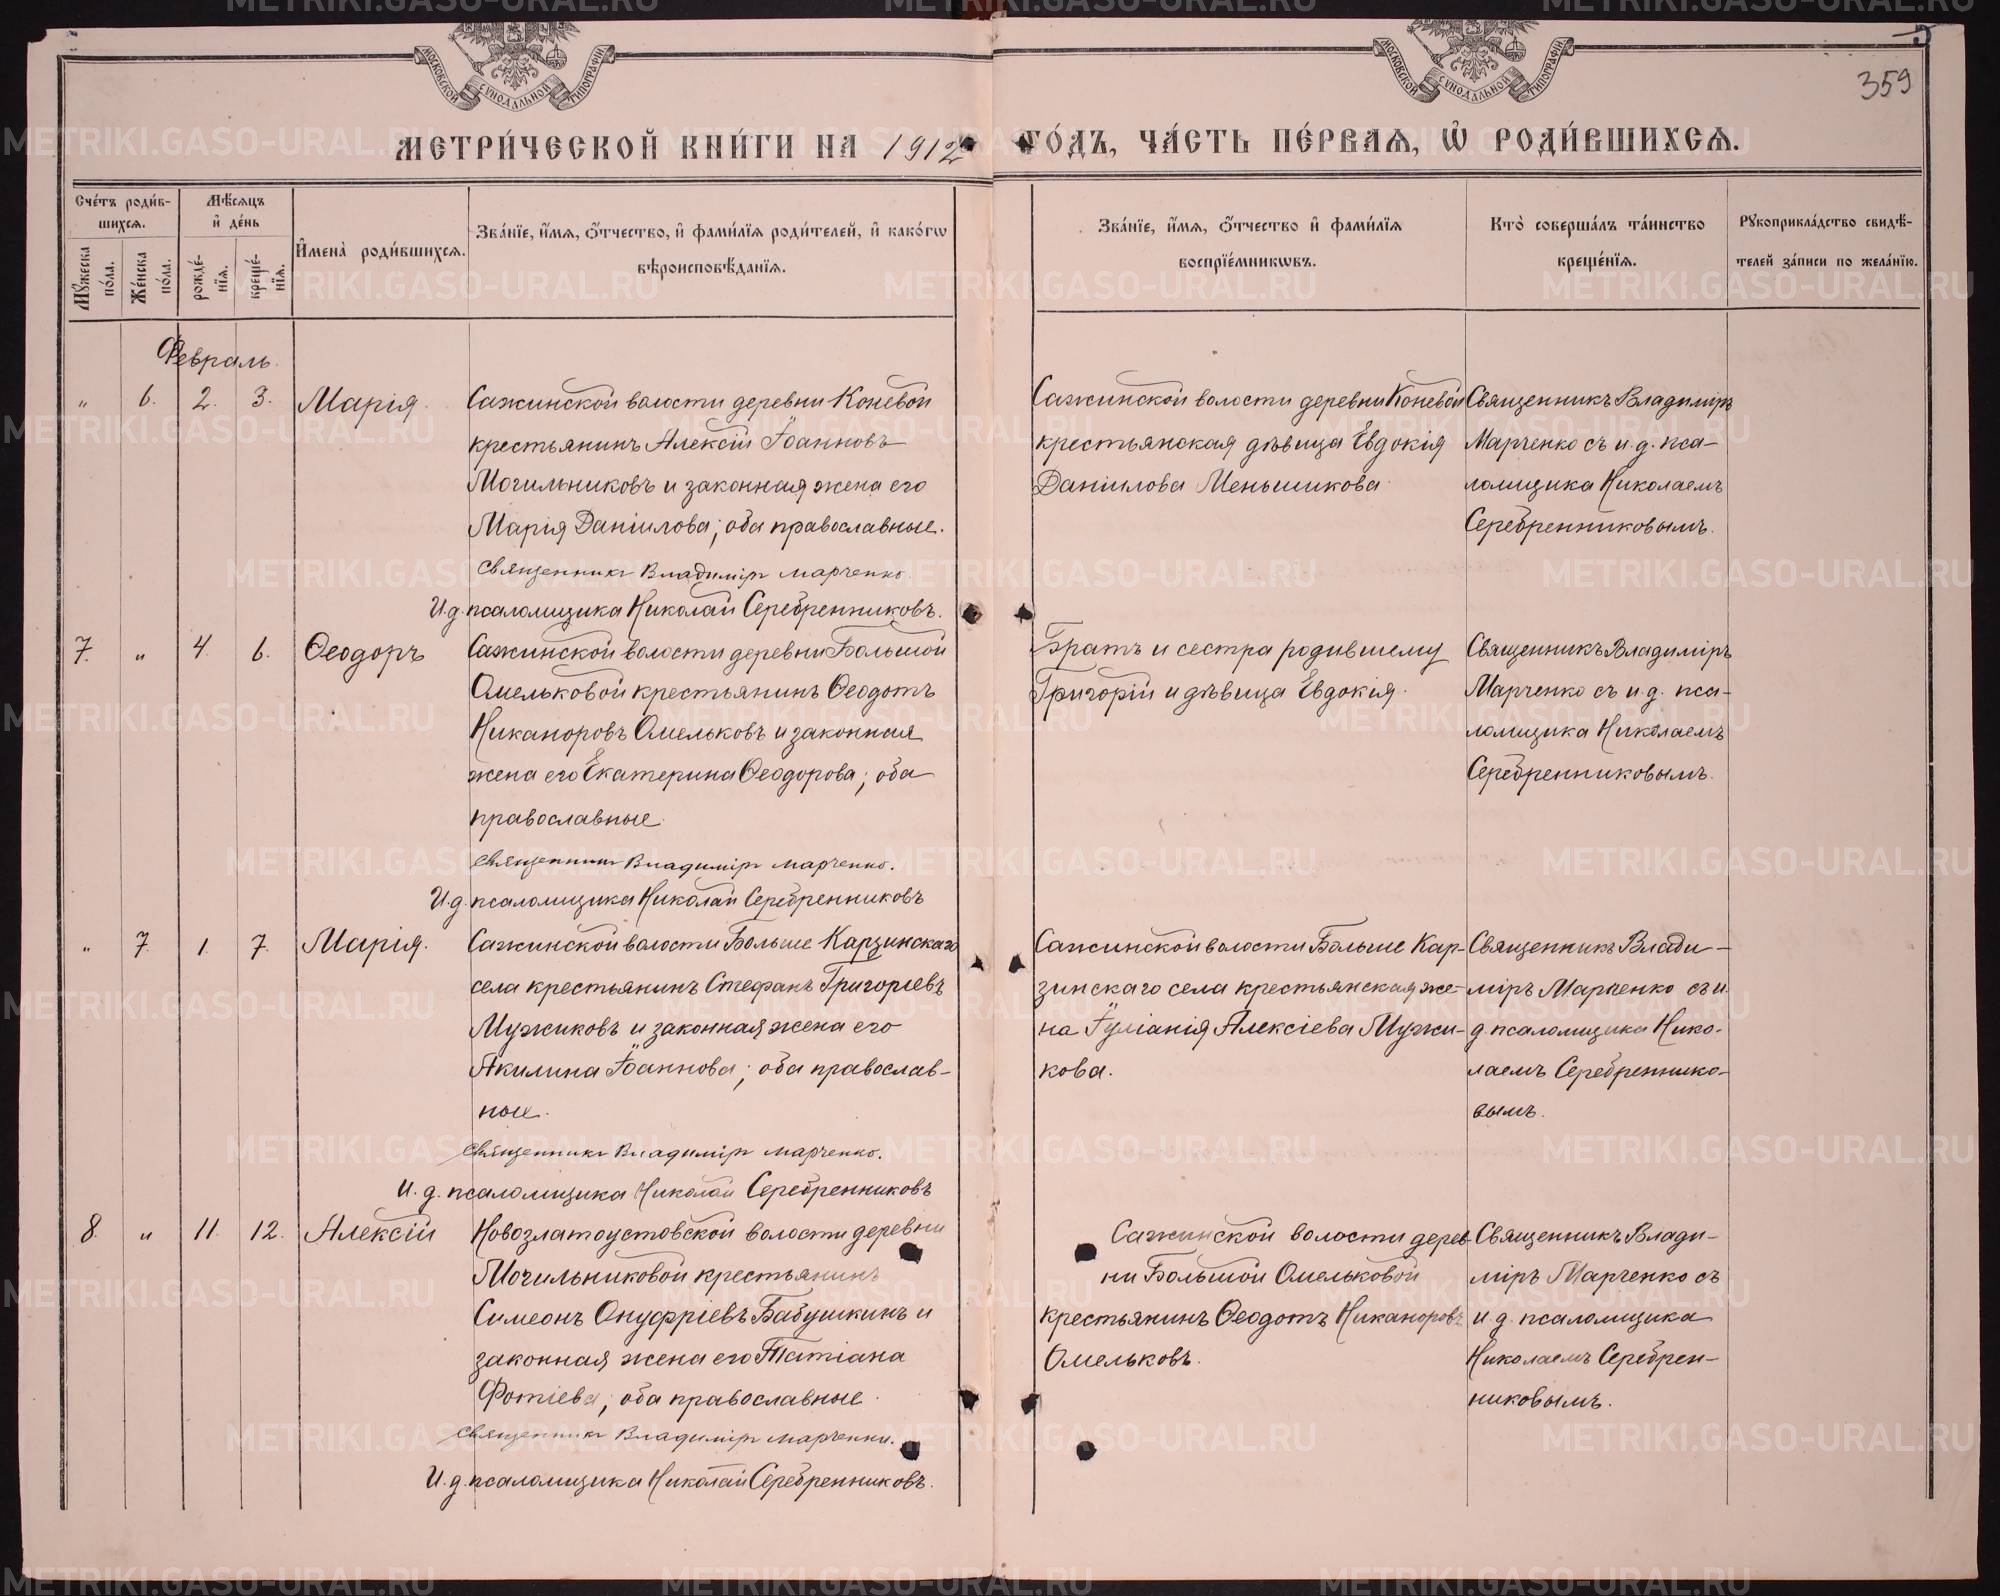 МОСКОВСКОЙ СѴНОДАЛЬНОЙ ТИПОГРАФІИ
МОСКОВСКОЙ СѴНОДАЛЬНОЙ ТИПОГРАФІИ
359
МЕТРИ́ЧЕСКОЙ КНИ́ГИ НА 1912
ГО́ДЪ, ЧА́СТЬ ПЕ́РВАЯ, Ѡ҆ РОДИ́ВШИХСЯ.
Сче́тъ роди́в-
шихся.
Мѣ́сяцъ
и҆ де́нь
Мꙋ́жеска по́ла.
Же́нска по́ла.
рожде́-нїя.
креще́-нїя.
И҆мена̀ роди́вшихся.
Зва́нїе, и҆́мя, ѻ҆́тчество, и҆ фами́лїя роди́телей, и҆ како́гѡ
вѣроисповѣ́данїя.
Зва́нїе, и҆́мя, ѻ҆́тчество и҆ фами́лїя
воспрїе́мникѡвъ.
Кто̀ соверша́лъ та́инство
креще́нїя.
Рꙋкоприкла́дство свидѣ́-
телей за́писи по жела́нїю.
Февраль.
" 6. 2. 3. Марія.
Сажинской волости деревни Коневой
крестьянинъ Алексій Іоанновъ
Могильниковъ и законная жена его
Марія Даніилова; оба православные.
Священникъ Владиміръ Марченко.
И.д. псаломщика Николай Серебренниковъ.
Сажинской волости деревни Коневой
крестьянская дѣвица Евдокія
Даніилова Меньшикова
Священникъ Владиміръ
Марченко съ и.д. пса-
ломщика Николаемъ
Серебренниковымъ.
7. " 4. 6. Ѳеодоръ
Сажинской волости деревни Большой
Омельковой крестьянинъ Ѳеодотъ
Никаноровъ Омельковъ и законная
жена его Екатерина Ѳеодорова; оба
православные.
Священникъ Владиміръ Марченко.
И.д. псаломщика Николай Серебренниковъ
Братъ и сестра родившему
Григорій и дѣвица Евдокія.
Священникъ Владиміръ
Марченко съ и.д. пса-
ломщика Николаемъ
Серебренниковымъ.
" 7. 1. 7. Марія.
Сажинской волости Больше Карзинскаго
села крестьянинъ Стефанъ Григоріевъ
Мужиковъ и законная жена его
Акилина Іоаннова; оба православ-
ные.
Священникъ Владиміръ Марченко.
И. д. псаломщика Николай Серебренниковъ
Сажинской волости Больше Кар-
зинскаго села крестьянская же-
на Іуліанія Алексіева Мужи-
кова.
Священникъ Влади-
міръ Марченко съ и.
д. псаломщика Нико-
лаемъ Серебреннико-
вымъ.
8. " 11. 12. Алексій
Новозлатоустовской волости деревни
Могильниковой крестьянинъ
Симеонъ Онуфріевъ Бабушкинъ и
законная жена его Татіана
Фотіева; оба православные.
Священникъ Владиміръ Марченко.
И.д. псаломщика Николай Серебренниковъ.
Сажинской волости дерев-
ни Большой Омельковой
крестьянинъ Ѳеодотъ Никаноровъ
Омельковъ.
Священникъ Влади-
міръ Марченко съ
и д. псаломщика
Николаемъ Серебрен-
никовымъ.
METRIKI.GASO-URAL.RU